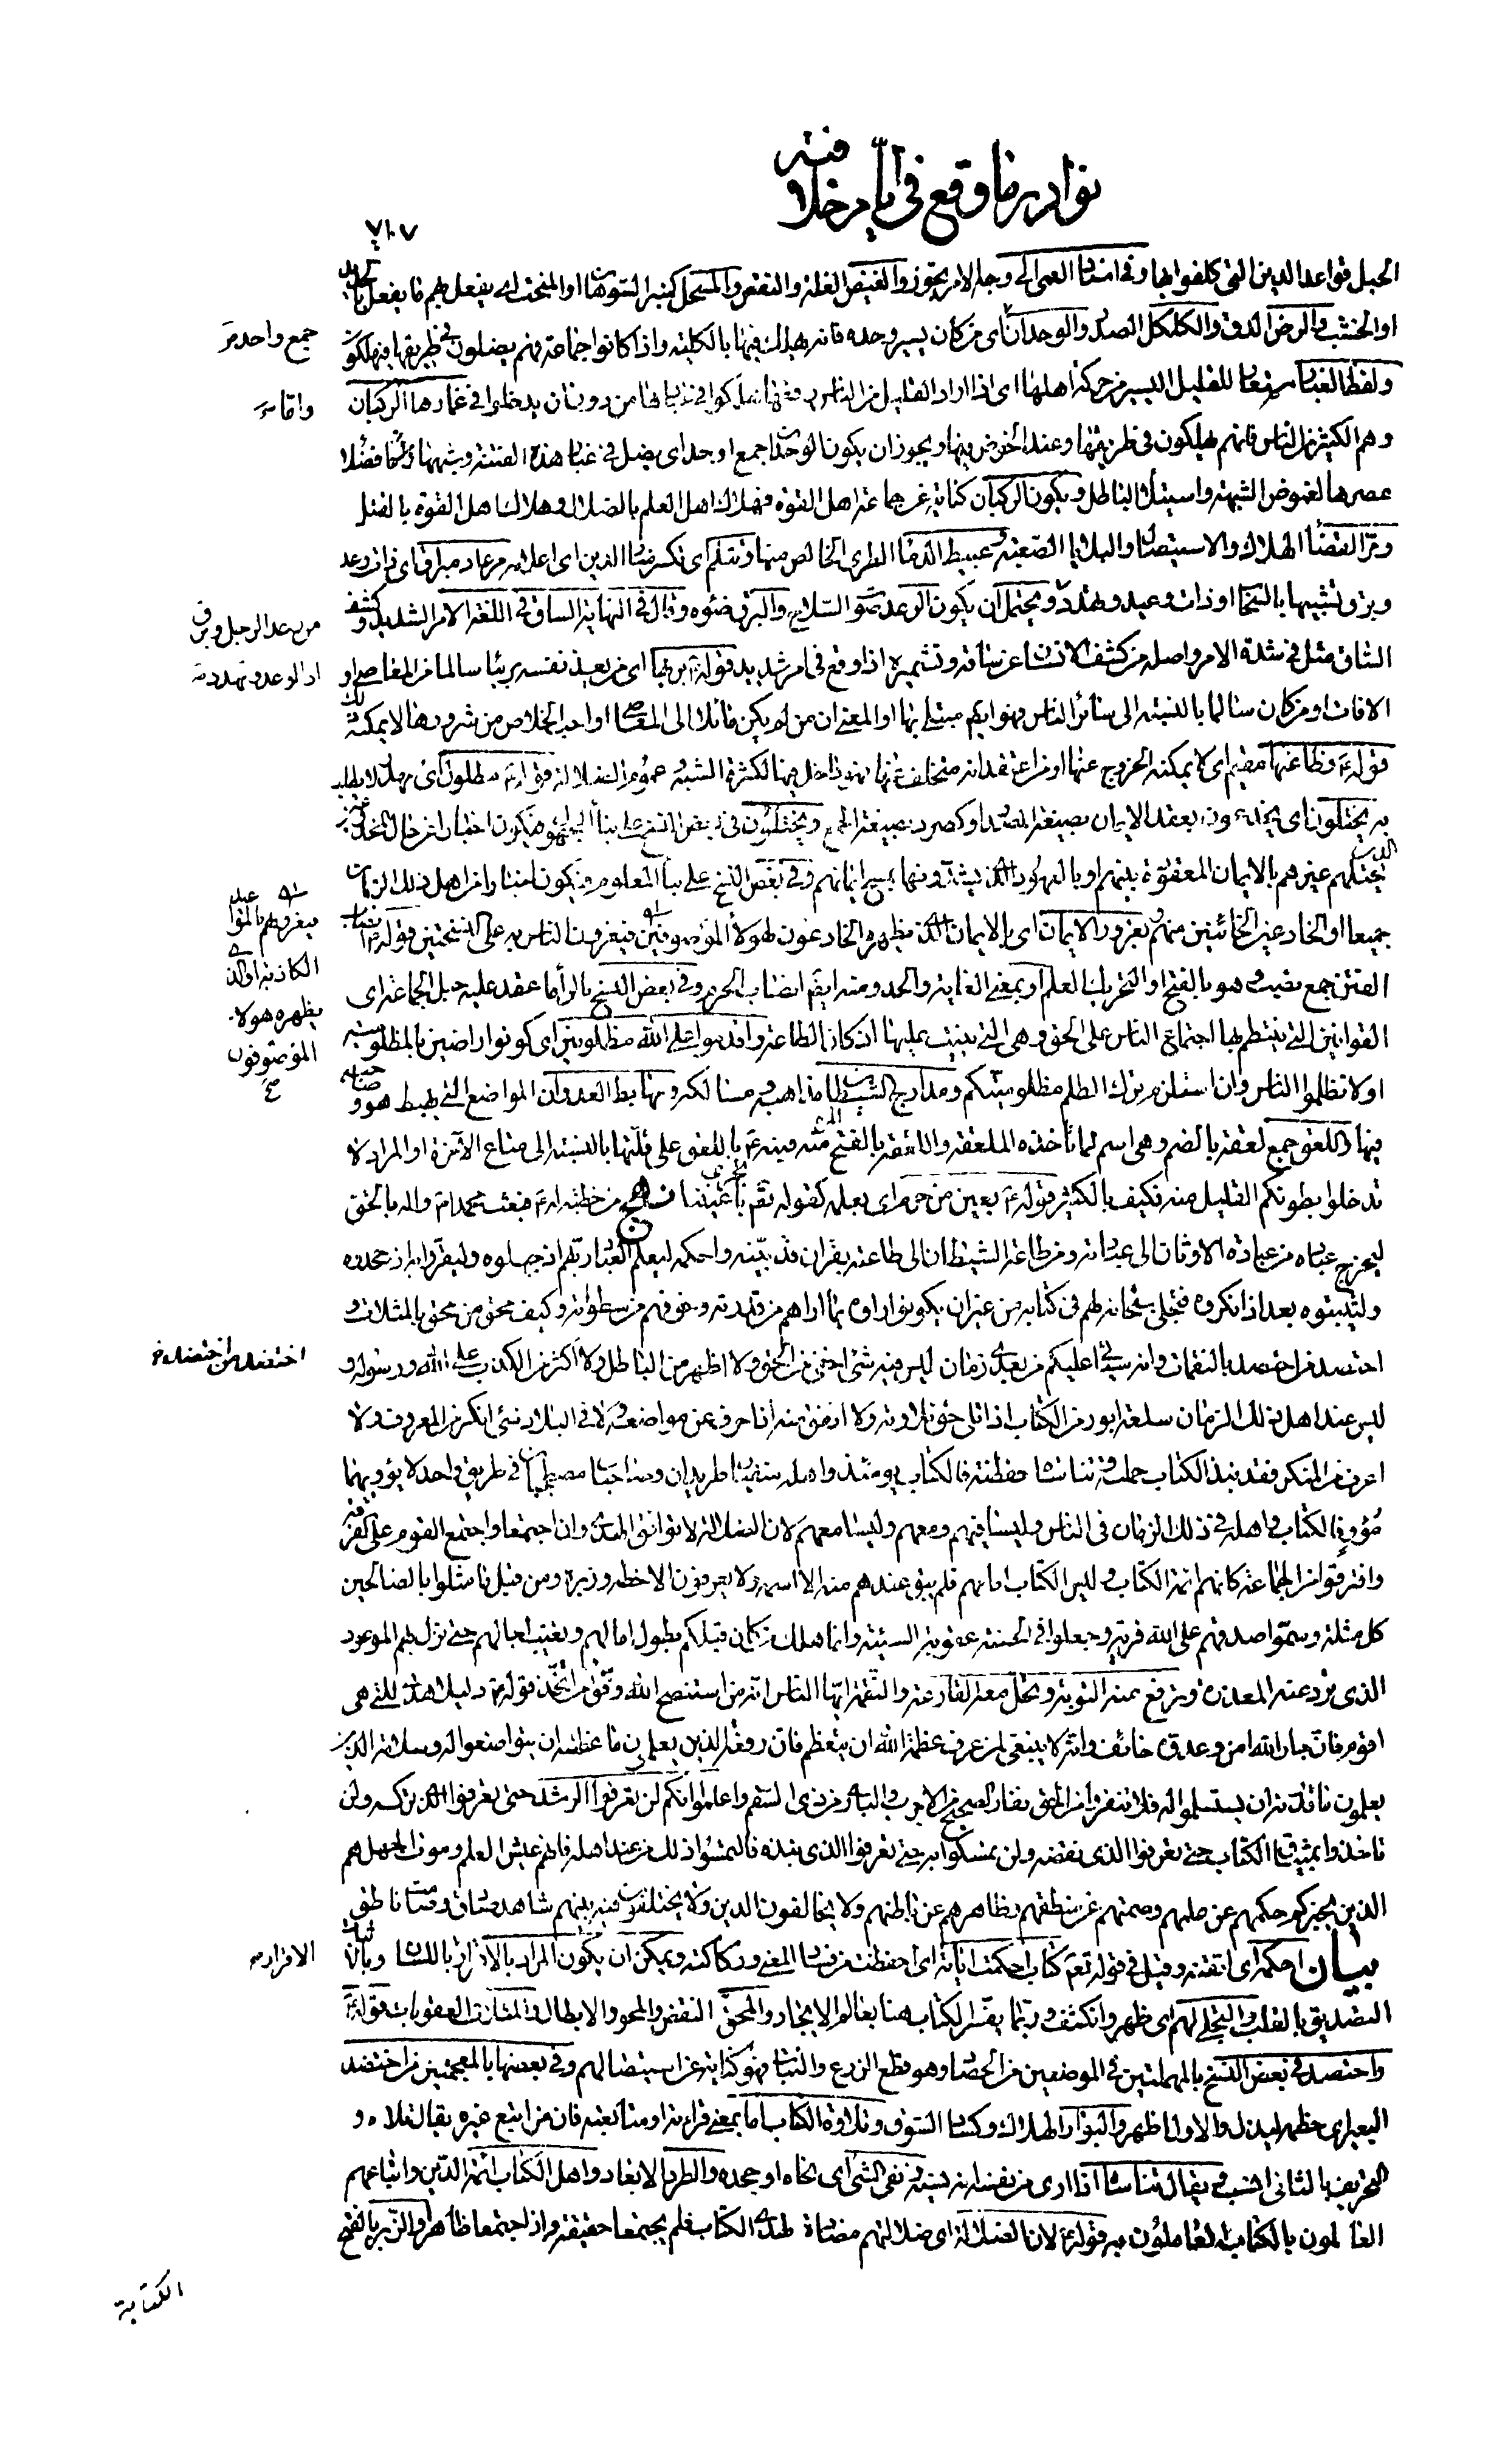 نوادر ما وقع في أيام خلافته
٧١٠٧
الحبل قواعد الدين التي كلفوا بها وفي اسناد العمى إلى وجه الامر تجوز والغيض القلة والنقص والمسحل كمنبر السوهان او المنحت اي يفعل بهم ما يفعل
او الخشب والرض الدق والكلكل الصدر والوحدان اي من كان يسير وحده فانه يهلك فيها بالكلية واذا كانوا جماعة فهم يضلون في طريقها فيهلكون
ولفظ الغبار مستعار للقليل اليسير من حركة اهلها اي اذا اراد القليل من الناس دفعها هلكوا في غبارها من دون ان يدخلوا في غمارها الركبان
وهم الكثير من الناس فانهم يهلكون في طريقها وعند الخوض فيها ويجوز ان يكون الوحدان جمع اوحد اي يضل في غبار هذه الفتنة وشبهها فضلاء
عصرها لغموض الشبهة واستيلاء الباطل ويكون الركبان كناية عن اهل القوة فهلاك اهل العلم بالضلال وهلاك اهل القوة بالقتل
ومر القضاء الهلاك والاستيصال والبلايا الصعبة وعبيط الدماء الطري الخالص منها وتثلم اي تكسر منار الدين اي اعلامه مرعاد مبراق اي ذات وعد
وبرق تشبيها بالسحاب او ذات وعيد وتهدد ويحتمل ان يكون الرعد صوت السلاح والبرق ضوءه وقال في النهاية الساق في اللغة الامر الشديد وكشف
الساق مثل في شدة الامر واصله من كشف الانسان عن ساقه وتشميره اذا وقع في امر شديد قوله بريها اي من يعد نفسه بريئا سالما من المعاصي او
الافات او من كان سالما بالنسبة الى سائر الناس فهو ايضا مبتلى بها او المعنى ان من لم يكن مائلا الى المعاصي او احب الخلاص من شرورها لا يمكنه ذلك
قوله ع وظاعنها مقيم اي لا يمكنه الخروج عنها او من اعتقد انه متخلف عنها فهو داخل فيها لكثرة الشبه وعموم الضلالة قوله ع مطلول اي مهدر لا يطلب
به يختلون اي يخدعون بعقد الايمان بصيغة المصدر او كصرد بصيغة الجمع ويختلون في بعض النسخ على بناء المجهول فيكون اخبارا عن حال المخدوعين
يختلهم غيرهم بالايمان المعقودة بينهم او بالعهود التي يشدونها بمسح ايمانهم وفي بعض النسخ على بناء المعلوم فيكون اخبارا عن اهل ذلك الزمان
جميعا او الخادعين الخائنين منهم وبغرور الايمان اي بالايمان الذي يظهره الخادعون لهؤلاء الموصوفين فيغرون الناس به على النسختين قوله ع انصاب
الفتن جمع نصب وهو بالفتح او التحريك العلم او بمعنى الغاية والحد ومنه ايضا انصاب الحرم وفي بعض النسخ بالراء ما عقد عليه حبل الجماعة اي
القوانين التي ينتظم بها اجتماع الناس على الحق وهي التي بنيت عليها اركان الطاعة واقدموا على الله مظلومين اي كونوا راضين بالمظلومية
او لا تظلموا الناس وان استلزم ترك الظلم مظلوميتكم ومدارج الشيطان مذاهبه ومسالكه ومهابط العدوان المواضع التي يهبط هو وصاحبه
فيها واللعق جمع لعقة بالضم وهي اسم لما تأخذه الملعقة واللعقة بالفتح المرة منه ونبه ع باللعق على قلتها بالنسبة الى متاع الآخرة او المراد لا
تدخلوا بطونكم القليل منه فكيف بالكثير قوله ع بعين من حرم اي بعلمه كقوله تعالى تجري باعيننا نهج من خطبة له ع فبعث محمدا ص واله بالحق
ليخرج عباده من عبادة الاوثان الى عبادته ومن طاعة الشيطان الى طاعته بقران قد بينه واحكمه ليعلم العباد ربهم اذ جهلوه وليقروا به اذ جحدوه
وليثبتوه بعد اذ انكروه فتجلى سبحانه لهم في كتابه من غير ان يكونوا راوه بما اراهم من قدرته وخوفهم من سطوته وكيف محق من محق بالمثلات و
احتصد من احتصد بالنقمات وانه سيأتي عليكم من بعدي زمان ليس فيه شيء اخفى من الحق ولا اظهر من الباطل ولا اكثر من الكذب على الله ورسوله و
ليس عند اهل ذلك الزمان سلعة ابور من الكتاب اذا تلي حق تلاوته ولا انفق منه اذا حرف عن مواضعه ولا في البلاد شيء انكر من المعروف ولا
اعرف من المنكر فقد نبذ الكتاب حملته وتناساه حفظته فالكتاب يومئذ واهله منفيان طريدان وصاحبان مصطحبان في طريق واحد لا يؤويهما
مؤو فالكتاب واهله في ذلك الزمان في الناس وليسا فيهم ومعهم وليسا معهم لان الضلالة لا توافق الهدى وان اجتمعا واجتمع القوم على الفرقة
وافترقوا عن الجماعة كانهم ائمة الكتاب وليس الكتاب امامهم فلم يبق عندهم منه الا اسمه ولا يعرفون الا خطه وزبره ومن قبل ما مثلوا بالصالحين
كل مثلة وسموا صدقهم على الله فرية وجعلوا في الحسنة عقوبة السيئة وانما هلك من كان قبلكم بطول آمالهم وتغيب آجالهم حتى نزل بهم الموعود
الذي ترد عنه المعذرة وترفع عنه التوبة وتحل معه القارعة والنقمة ايها الناس انه من استنصح الله وفق ومن اتخذ قوله دليلا هدي للتي هي
اقوم فان جار الله امن وعدوه خائف وانه لا ينبغي لمن عرف عظمة الله ان يتعظم فان رفعة الذين يعلمون ما عظمته ان يتواضعوا له وسلامة الذين
يعلمون ما قدرته ان يستسلموا له فلا تنفروا من الحق نفار الصحيح من الاجرب والباري من ذي السقم واعلموا انكم لن تعرفوا الرشد حتى تعرفوا الذي تركه ولن
تاخذوا بميثاق الكتاب حتى تعرفوا الذي نقضه ولن تمسكوا به حتى تعرفوا الذي نبذه فالتمسوا ذلك من عند اهله فانهم عيش العلم وموت الجهل هم
الذين يخبركم حكمهم عن علمهم وصمتهم عن منطقهم وظاهرهم عن باطنهم ولا يخالفون الدين ولا يختلفون فيه فهو بينهم شاهد صادق وصامت ناطق
بيان احكمه اي اتقنه وقيل في قوله تعالى كتاب احكمت اياته اي احفظت من فساد المعنى وركاكته ويمكن ان يكون المراد بالاقرار باللسان وبالاثبات
التصديق بالقلب والتجلي لهم اي ظهر وانكشف وربما يفسر الكتاب هنا بعالم الايجاد والمحق النقض والمحو والابطال والمثلات العقوبات قوله ع
واحتصد في بعض النسخ بالمهملتين في الموضعين من الحصاد وهو قطع الزرع والنبات فهو كناية عن استيصالهم وفي بعضها بالمعجمتين من اختضد
البعير اي خطمه ليذل والاول اظهر والبوار الهلاك وكساد السوق وتلاوة الكتاب اما بمعنى قراءته او متابعته فان من اتبع غيره يقال تلاه و
التحريف بالثاني انسب ويقال تناساه اذا ارى من نفسه انه نسيه ونفى الشيء اي نحاه او جحده والطرد الابعاد واهل الكتاب ائمة الدين واتباعهم
العالمون بالكتاب العاملون به قوله ع لان الضلالة اي ضلالتهم مضادة لهدي الكتاب فلم يجتمعا حقيقة وان اجتمعا ظاهرا والزبر بالفتح
الكتابة
جمع واحد
واما
من رعد الرجل وبرق
اذا توعد وتهدد
فيغروهم بالمواعيد
الكاذبة او الذي
يظهره هولاء
الموصوفون
اختضد من اختضد
الاقرار